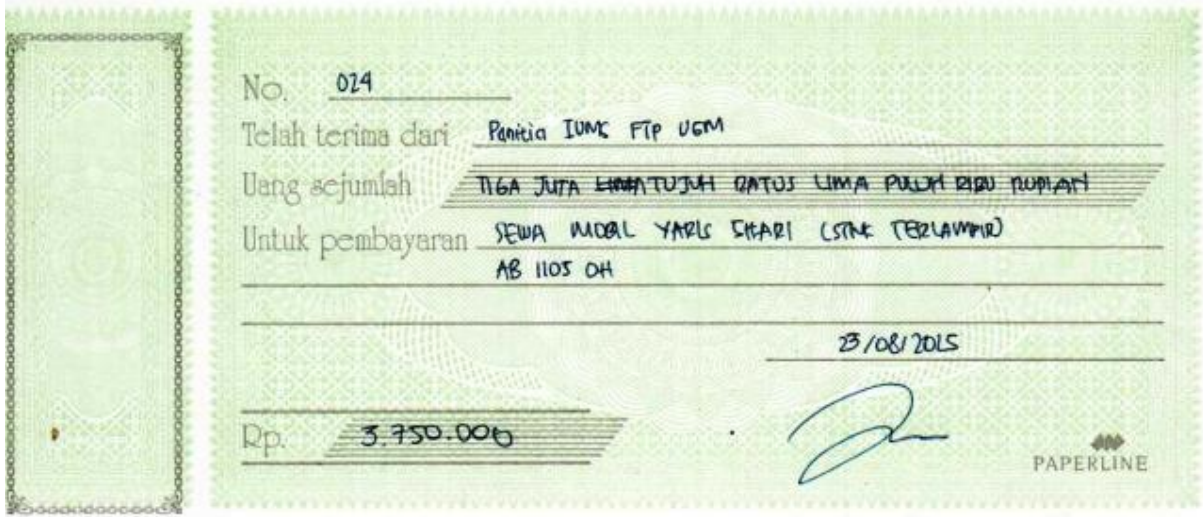 No. 024
Telah terima dari Panitia IUMS FTP UGM
Uang sejumlah TIGA JUTA LIMA TUJUH RATUS LIMA PULUH RIBU RUPIAH
Untuk pembayaran SEWA MOBIL YARIS 5HARI (STNK TERLAMPIR)
AB 1105 OH
23/08/2015
Rp. 3.750.000
PAPERLINE